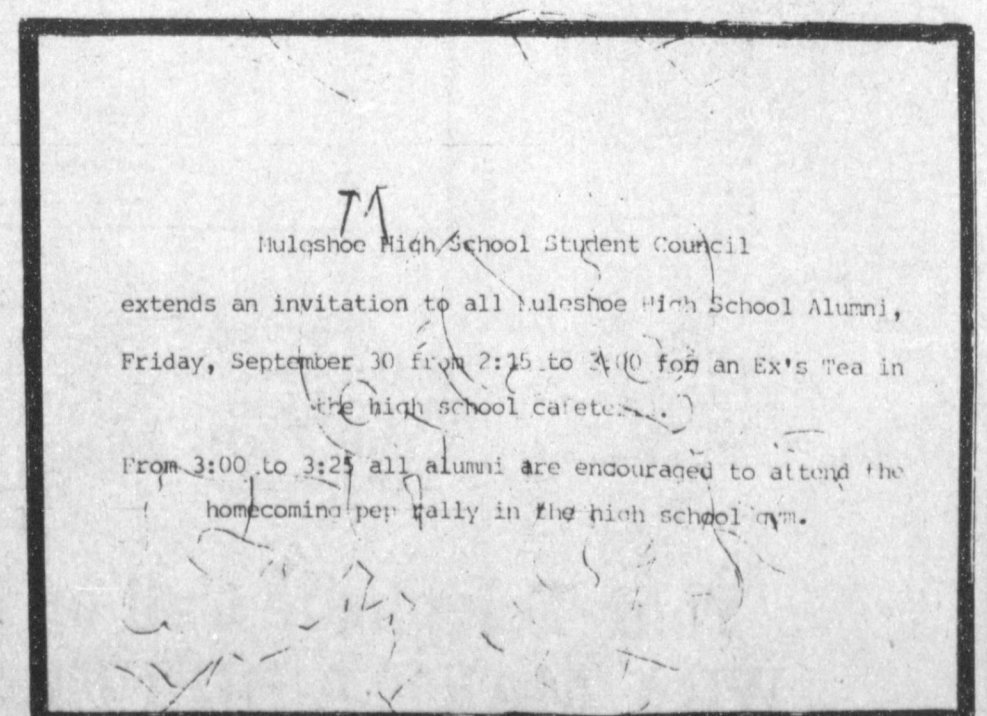 Muleshoe High School Student Council
extends an invitation to all Muleshoe High School Alumni,
Friday, September 30 from 2:15 to 3:00 for an Ex's Tea in
the high school
From 3:00 to 3:25 all alumni are encouraged to attend the
homecoming pep rally in the high school gym.